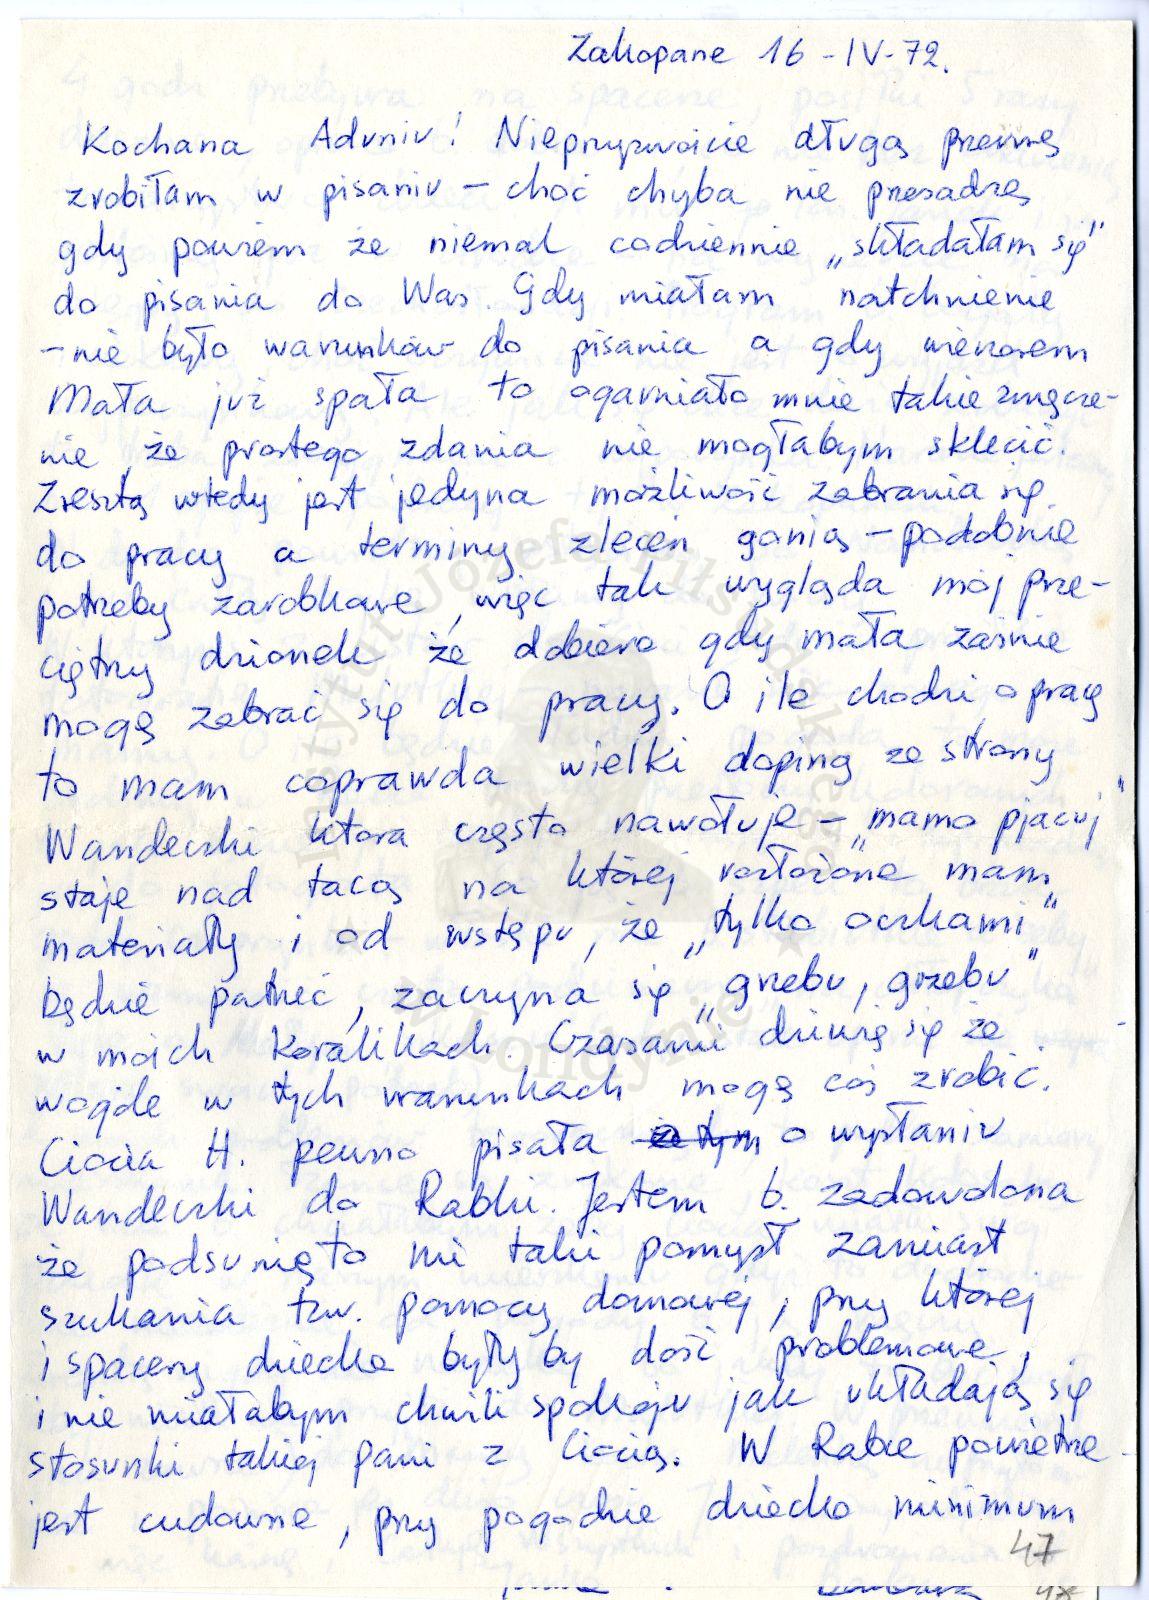 Zakopane 16-IV-72.
Kochana Aduniu! Nieprzyzwoicie długą przerwę
zrobiłam w pisaniu – choć chyba nie przesadzę
gdy powiem że niemal codziennie „składałam się"
do pisania do Was. Gdy miałam natchnienie
– nie było warunków do pisania a gdy wieczorem
Mała już spała to ogarniało mnie takie zmęcze-
nie, że prostego zdania nie mogłabym sklecić.
Zresztą wtedy jest jedyna możliwość zabrania się
do pracy a terminy zleceń gonią – podobnie
potrzeby zarobkowe, więc tak wygląda mój prze-
ciętny dzionek że dobiero gdy mała zaśnie
mogę zabrać się do pracy. O ile chodzi o pracę
to mam coprawda wielki doping ze strony
Wandeczki ktora często nawołuje – „mamo pjacuj"
staje nad tacą na której rozłożone mam
materiały i od wstępu, że „tylko oczkami"
będzie patrzeć, zaczyna się „grzebu, grzebu"
w moich koralikach. Czasami dziwię się że
wogóle w tych warunkach mogę coś zrobić.
Ciocia H. pewno pisała o tym o wysłaniu
Wandeczki do Rabki. Jestem b. zadowolona
że podsunięto mi taki pomysł zamiast
szukania tzw. pomocy domowej, przy której
i spacery dziecka były by dość problemowe,
i nie miałabym chwili spokoju jak układają się
stosunki takiej pani z Ciocią. W Rabce powietrze
jest cudowne, przy pogodzie dziecko minimum
47
48
Instytut Józefa Piłsudskiego
w Londynie